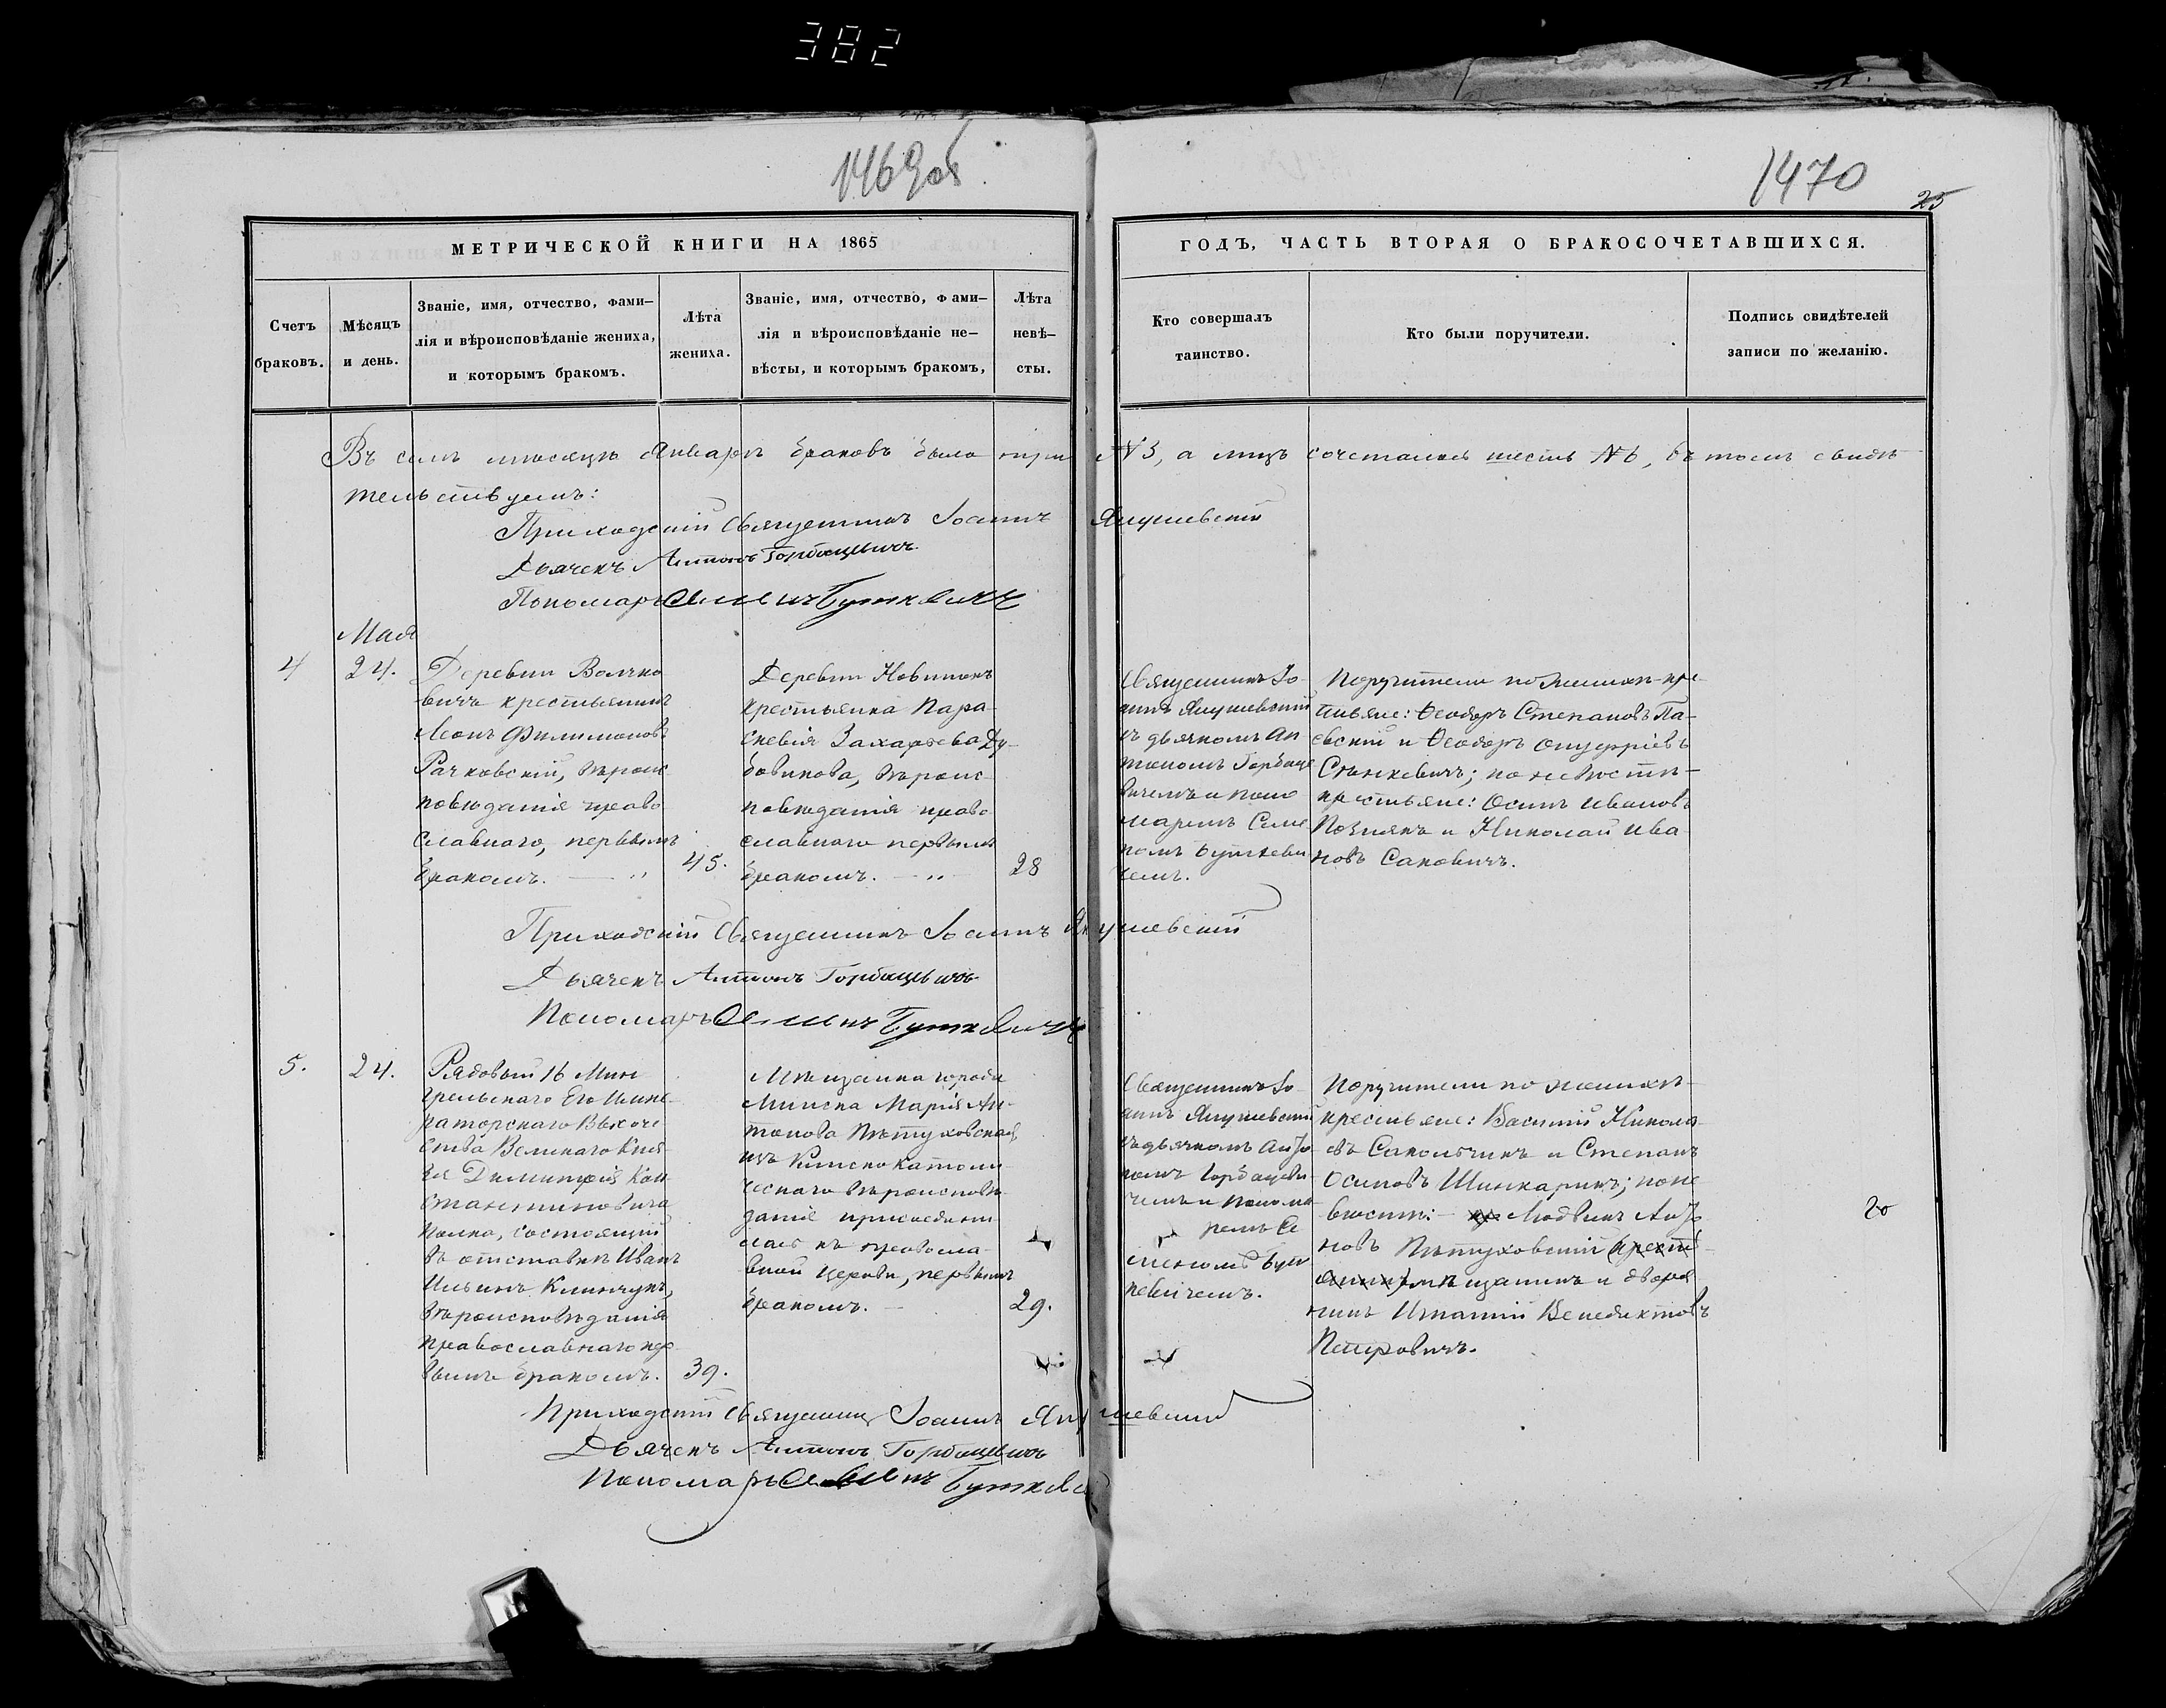 382
1469 об.
1470
25
МЕТРИЧЕСКОЙ КНИГИ НА 1865
ГОДЪ, ЧАСТЬ ВТОРАЯ О БРАКОСОЧЕТАВШИХСЯ.
Счетъ
браковъ.
Мѣсяцъ
и день.
Званіе, имя, отчество, фами-
лія и вѣроисповѣданіе жениха,
и которымъ бракомъ.
Лѣта
жениха.
Званіе, имя, отчество, фами-
лія и вѣроисповѣданіе не-
вѣсты, и которымъ бракомъ,
Лѣта
невѣ-
сты.
Кто совершалъ
таинство.
Кто были поручители.
Подпись свидѣтелей
записи по желанію.
Въ семъ мѣсяцѣ Январѣ браковъ было три №3, а лицъ сочеталось шесть №6, въ томъ свидѣ-
тельствуемъ:
Приходскій Священникъ Іоаннъ Янушевскій
Дьячекъ Антонъ Горбацевичъ
Пономарь Семенъ Буткевичъ
Мая
4
24.
Деревни Волчко
вичъ крестьянинъ
Леонъ Филимоновъ
Рачковскій, вѣроис
повѣданія право
славнаго, первымъ
бракомъ. — "
45.
Деревни Новинокъ
крестьянка Пара-
скевія Захарьева Ду-
бовикова, вѣроис-
повѣданія право
славнаго первымъ
бракомъ. — "
28
Священникъ Іо-
аннъ Янушевскій
съ дьячкомъ Ан
тономъ Горбаце
вичемъ и поно
маремъ Семе
номъ Буткеви
чемъ.
Поручители по женихѣ кре-
стьяне: Ѳеодоръ Степановъ Па-
евскій и Ѳеодоръ Онуфріевъ
Сѣнкевичъ; по невѣстѣ-
крестьяне: Осипъ Ивановъ
Познякъ и Николай Ива
новъ Саковичъ.
Приходскій Священникъ Іоаннъ Янушевскій
Дьячекъ Антонъ Горбацевичъ
Пономарь Семенъ Буткевичъ
5.
24.
Рядовый 16 Мин
грельскаго Его Импе-
раторскаго Высоче
ства Великаго Кня
зя Димитрія Кон
стантиновича
полка, состоящій
въ отставкѣ Иванъ
Ильинъ Климчукъ,
вѣроисповѣданія
православнаго пер
вымъ бракомъ.
39.
Мѣщанка города
Минска Марія Ан-
тонова Пѣтуховская,
изъ Римско католи
ческаго вѣроисповѣ
данія присоедини
лась къ правосла-
вной церкви, первымъ
бракомъ. —
29.
Священникъ Іо-
аннъ Янушевскій
съ дьячкомъ Анто
номъ Горбацеви
чемъ и понома
ремъ Се
меномъ Бут
кевичемъ.
Поручители по женихѣ-
крестьяне: Василій Никола
евъ и Степанъ
Осиповъ Шинкаринъ; по не
вѣстѣ: Людвикъ Анто
новъ Пѣтуховскій (крестья
нинъ) мѣщанинъ и дворя
нинъ Игнатій Венедиктовъ
Петровичъ.
20
Приходскій Священникъ Іоаннъ Янушевскій
Дьячекъ Антонъ Горбацевичъ
Пономарь Семенъ Буткеви